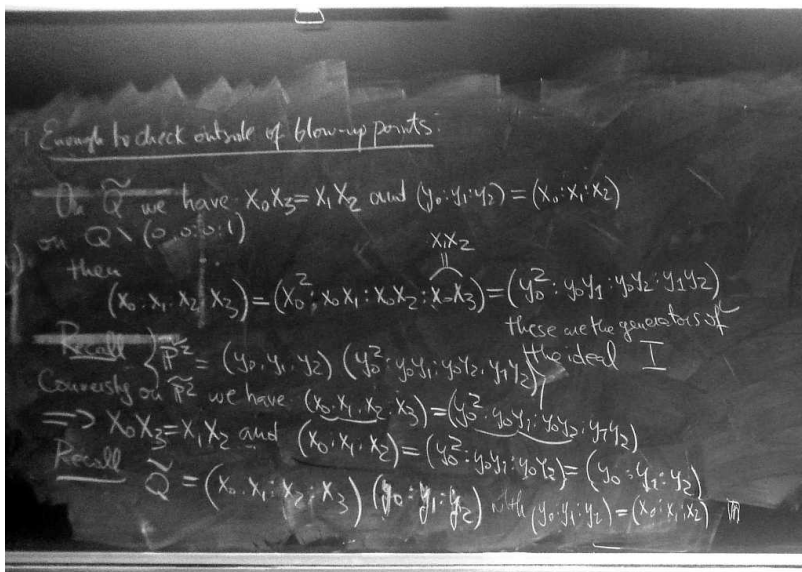 Enough to check outside of blow-up points:
On Q̃ we have x₀x₃=x₁x₂ and (y₀:y₁:y₂)=(x₀:x₁:x₂)
on Q∖(0:0:0:1)
then
x₁x₂
(x₀:x₁:x₂:x₃)=(x₀²:x₀x₁:x₀x₂:x₀x₃)=(y₀²:y₀y₁:y₀y₂:y₁y₂)
these are the generators of
the ideal I
Recall P̃²=(y₀,y₁,y₂)(y₀²:y₀y₁:y₀y₂,y₁y₂)
Conversely on P̃² we have (x₀:x₁,x₂:x₃)=(y₀²:y₀y₁:y₀y₂,y₁y₂)
⟹ x₀x₃=x₁x₂ and (x₀:x₁:x₂)=(y₀²:y₀y₁:y₀y₂)=(y₀:y₁:y₂)
Recall Q̃=(x₀:x₁:x₂:x₃)(y₀:y₁:y₂) with (y₀:y₁:y₂)=(x₀:x₁:x₂)